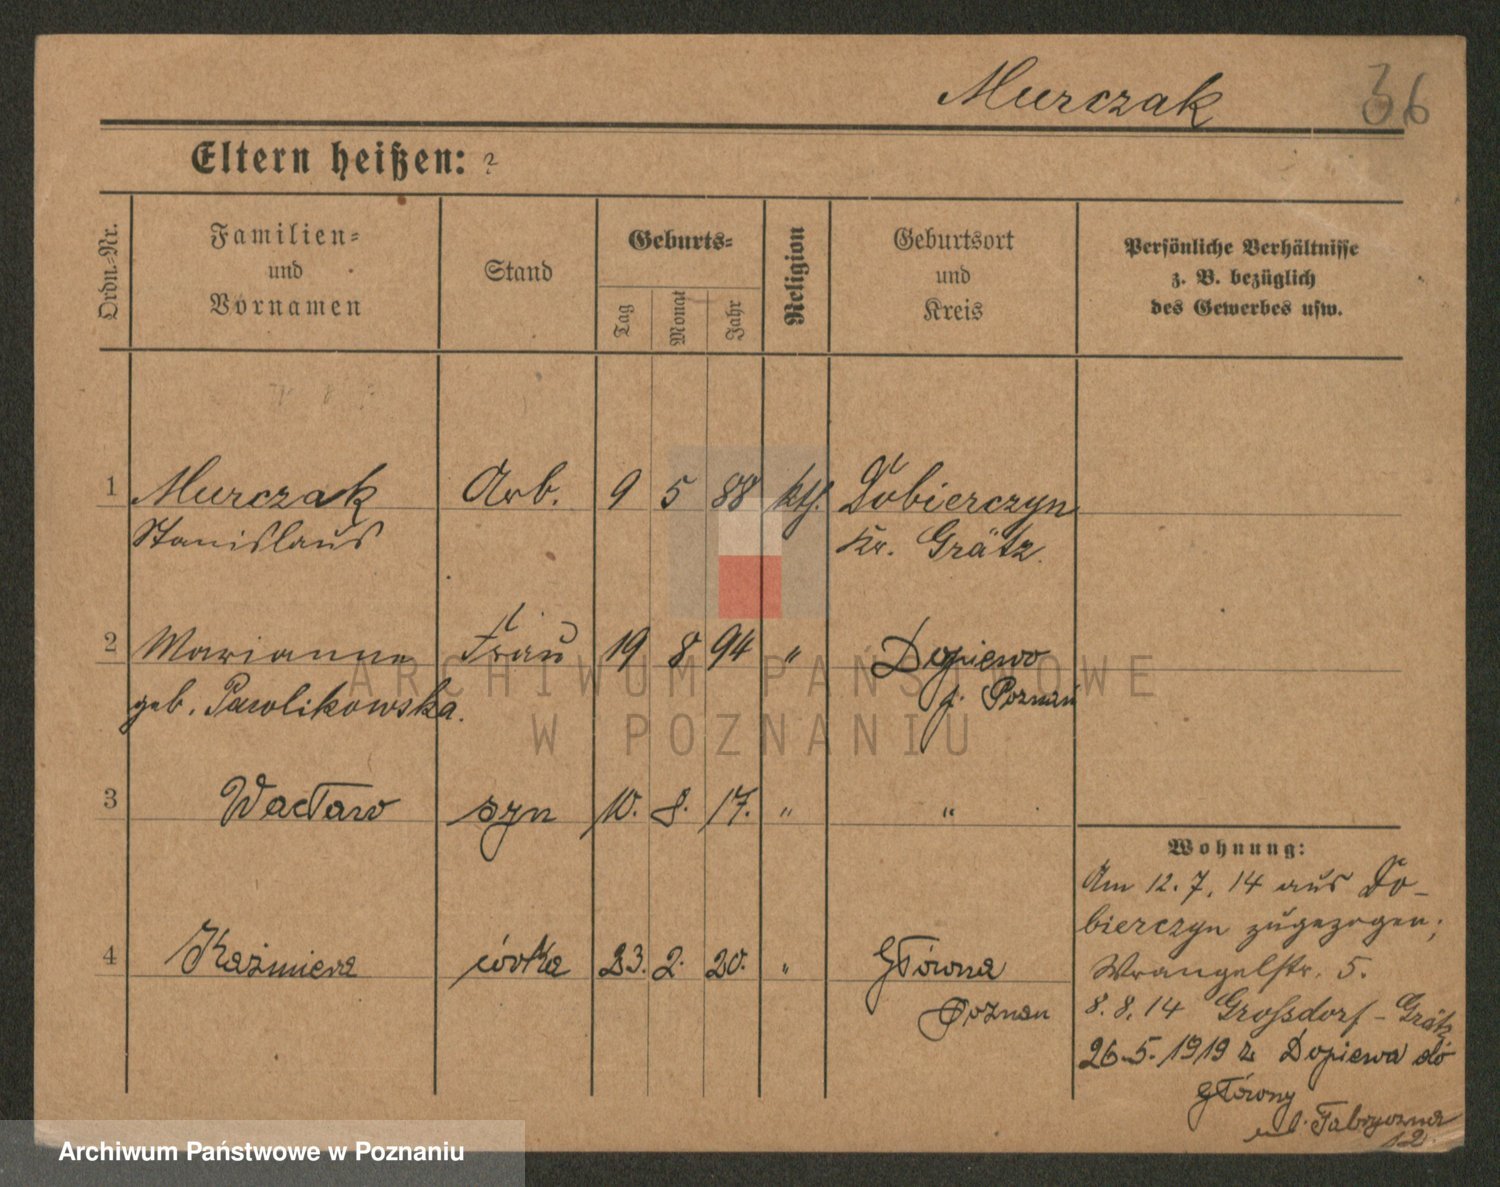 Murczak 36
Eltern heißen: ?
Ordn.-Nr.
Familien-
und
Vornamen
Stand
Geburts-
Tag
Monat
Jahr
Religion
Geburtsort
und
Kreis
Persönliche Verhältnisse
z. B. bezüglich
des Gewerbes usw.
1 Murczak Arb. 9 5 88 kth. Dobierczyn
Stanislaus Kr. Grätz.
2 Marianna Frau 19 8 94 " Dopiewo
geb. Pawlikowska. p. Poznań
ARCHIWUM PAŃSTWOWE
W POZNANIU
3 Wacław syn 10. 8. 17. " "
Wohnung:
Am 12. 7. 14 aus Do-
bierczyn zugezogen;
4 Kaźmiera córka 23. 2. 20. " Główna
Wrangelstr. 5.
Poznan
8. 8. 14 Grossdorf - Grätz
26.5.1919 z Dopiewa do
Główny
ul. Fabryczna
12
Archiwum Państwowe w Poznaniu